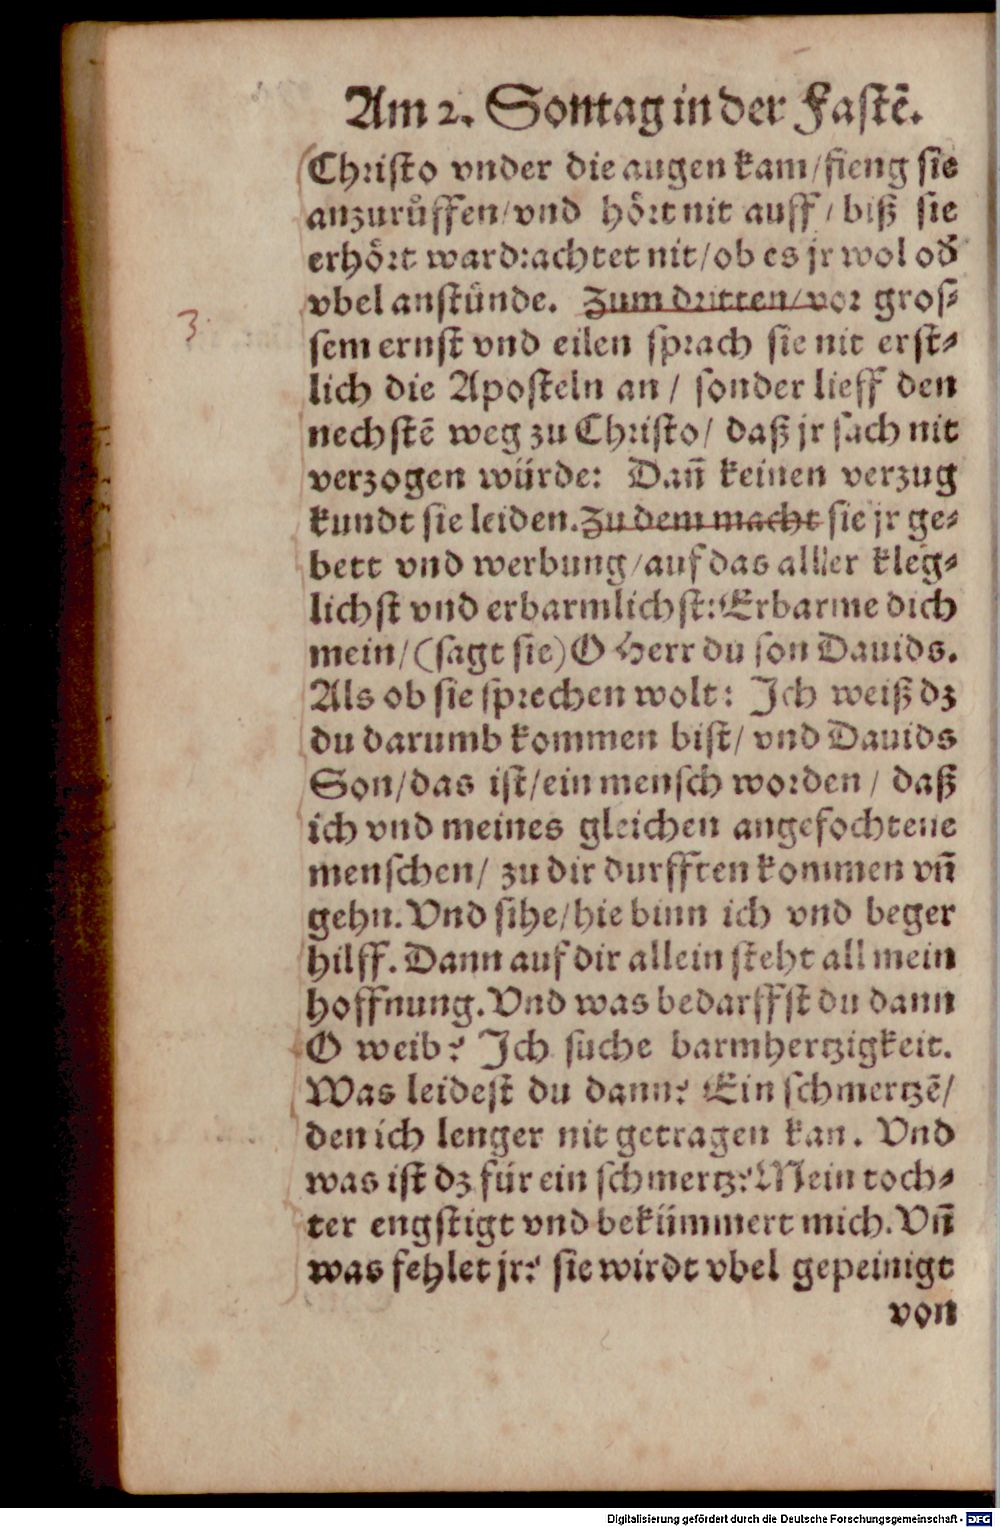 Am 2. Sontag in der Fastē.
Christo vnder die augen kam/fieng sie
anzurůffen/vnd hört nit auff/biß sie
erhört ward:achtet nit/ob es jr wol od̄
vbel anstünde. Zum dritten/vor gros⸗
sem ernst vnd eilen sprach sie nit erst⸗
lich die Aposteln an/ sonder lieff den
3.
nechstē weg zu Christo/ daß jr sach nit
verzogen würde: Dañ keinen verzug
kundt sie leiden. Zu dem macht sie jr ge⸗
bett vnd werbung/auf das aller kleg⸗
lichst vnd erbarmlichst:Erbarme dich
mein/(sagt sie)O Herr du son Dauids.
Als ob sie sprechen wolt: Ich weiß dz
du darumb kommen bist/ vnd Dauids
Son/das ist/ein mensch worden/ daß
ich vnd meines gleichen angefochtene
menschen/ zu dir durfften kommen vñ
gehn. Vnd sihe/hie binn ich vnd beger
hilff. Dann auf dir allein steht all mein
hoffnung. Vnd was bedarffst du dann
O weib? Ich suche barmhertzigkeit.
Was leidest du dann? Ein schmertzē/
den ich lenger nit getragen kan. Vnd
was ist dz für ein schmertz? Mein toch⸗
ter engstigt vnd bekümmert mich. Vñ
was fehlet jr? sie wirdt vbel gepeinigt
von
Digitalisierung gefördert durch die Deutsche Forschungsgemeinschaft - DFG